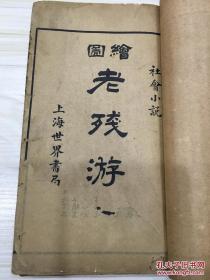 社會小説
繪圖
老殘游
上海世界書局